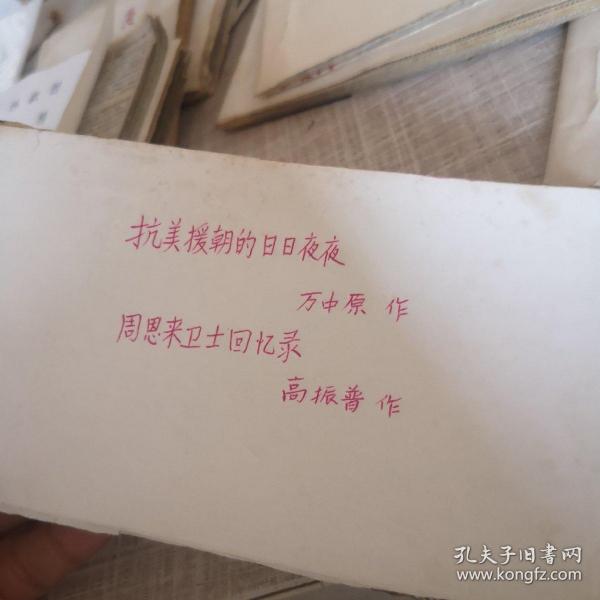 抗美援朝的日日夜夜
万中原 作
周恩来卫士回忆录
高振普 作
孔夫子旧书网
www.kongfz.com